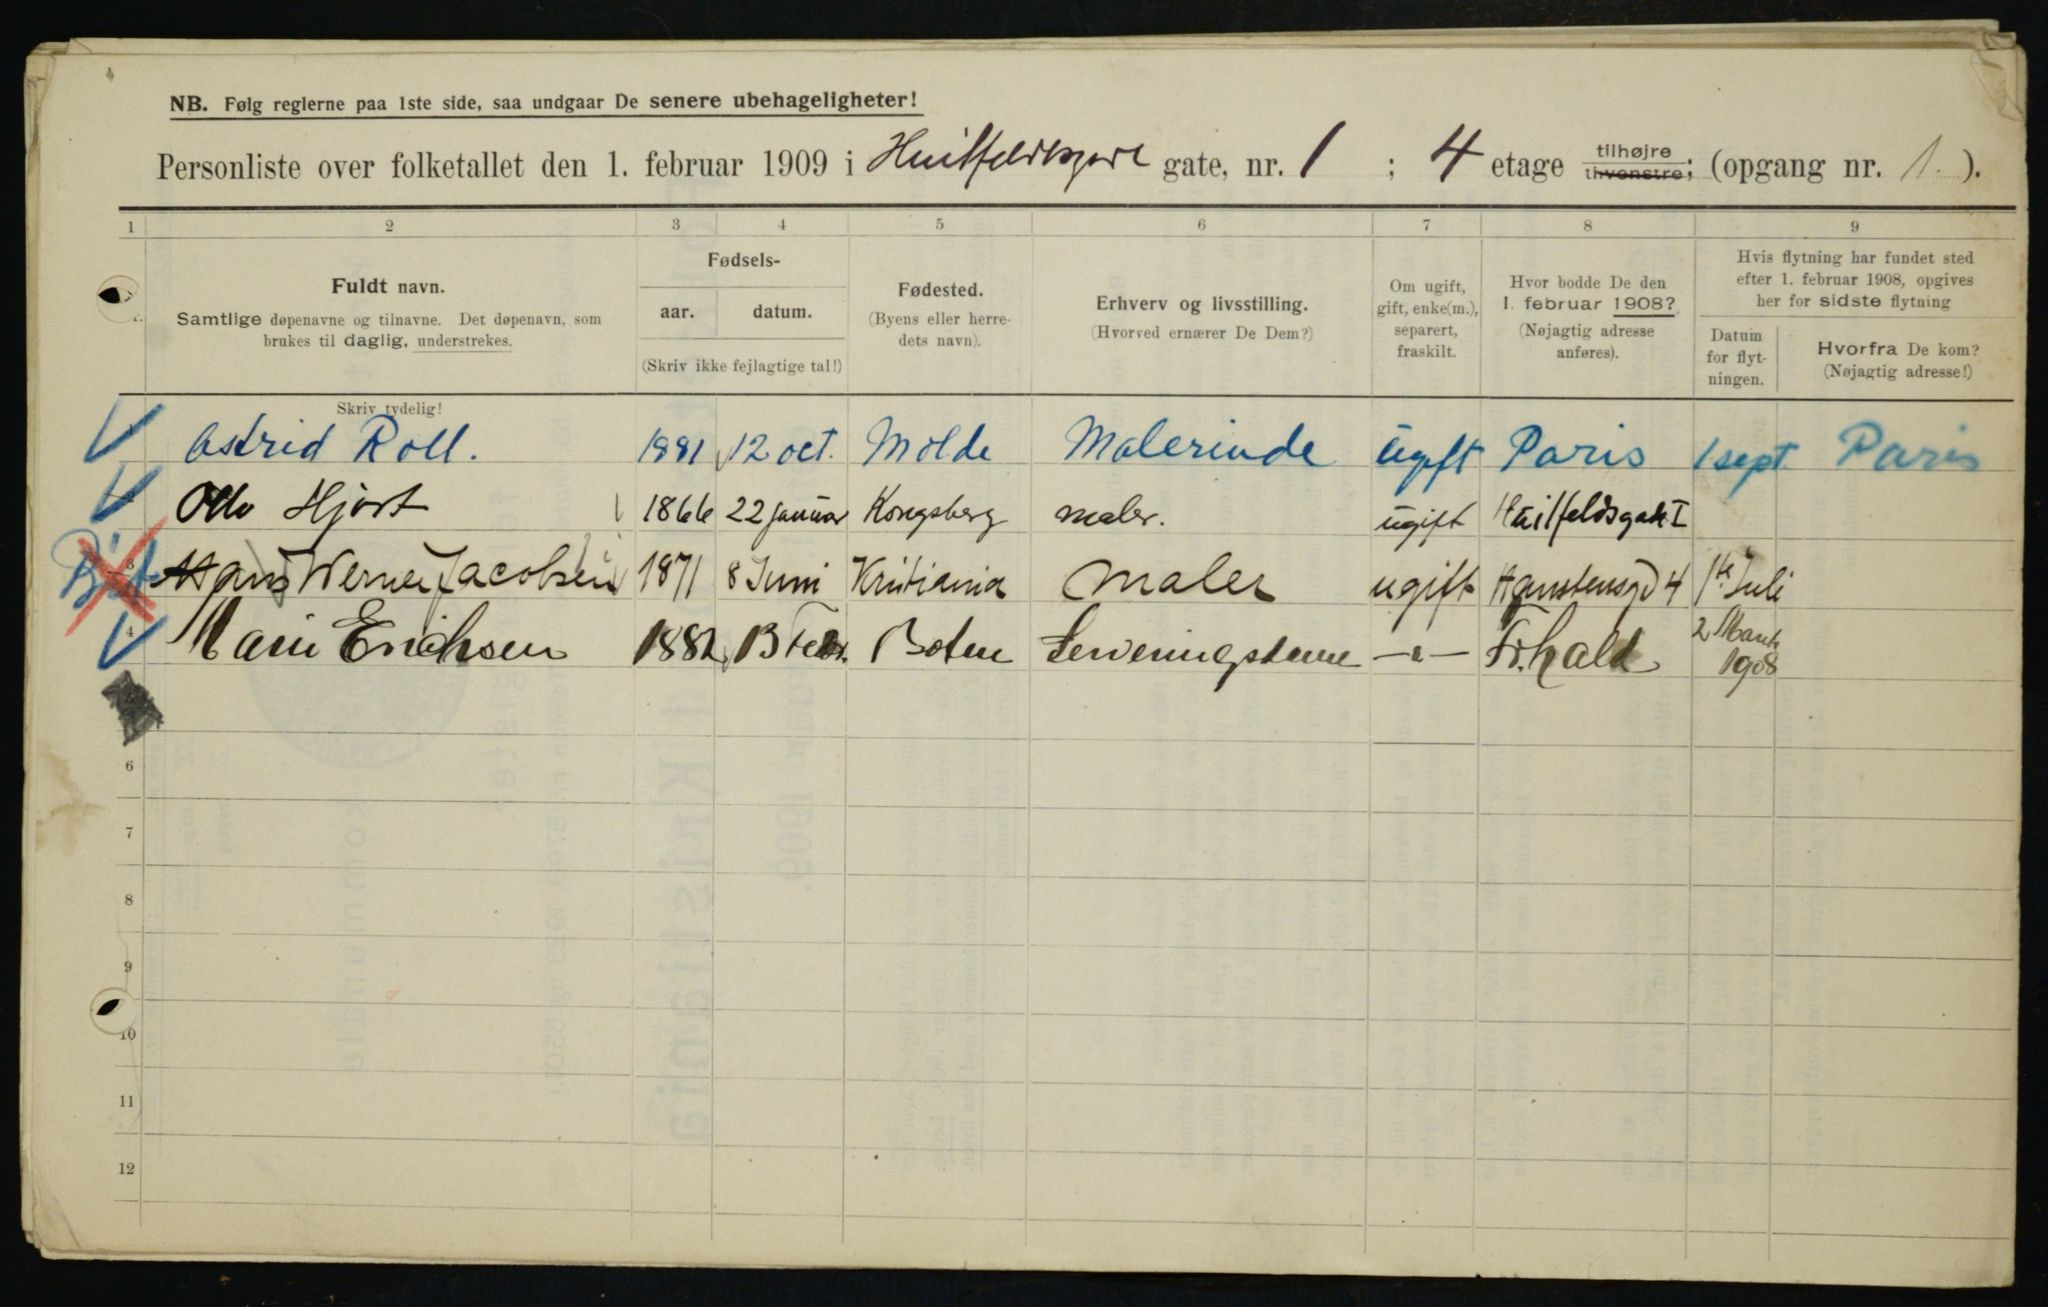 NB. Følg reglerne paa 1ste side, saa undgaar De senere ubehageligheter!
Personliste over folketallet den 1. februar 1909 i Huitfeldtsgate gate, nr. 1 ; 4 etage tilhøjre tilvenstre; (opgang nr. 1. ).
1 2 3 4 5 6 7 8 9
Fuldt navn.
Samtlige døpenavne og tilnavne. Det døpenavn, som
brukes til daglig, understrekes.
Skriv tydelig!
Fødsels-
aar. datum.
(Skriv ikke fejlagtige tal!)
Fødested.
(Byens eller herre-
dets navn).
Erhverv og livsstilling.
(Hvorved ernærer De Dem?)
Om ugift,
gift, enke(m.),
separert,
fraskilt.
Hvor bodde De den
1. februar 1908?
(Nøjagtig adresse
anføres).
Hvis flytning har fundet sted
efter 1. februar 1908, opgives
her for sidste flytning
Datum
for flyt-
ningen.
Hvorfra De kom?
(Nøjagtig adresse!)
Astrid Roll. 1881 12 oct. Molde Malerinde ugift Paris 1 sept Paris
2 Otto Hjort 1866 22 januar Kongsberg maler. ugift Huitfeldsgate I
3 Hans Werner Jacobsen 1871 8 Juni Kristiania Maler ugift 4 1ste Juli
4 Marie Erichsen 1882 13 Febr. Serveringsdame —"— Fr.hald 2 Marts
1908
6
7
8
9
10
11
12